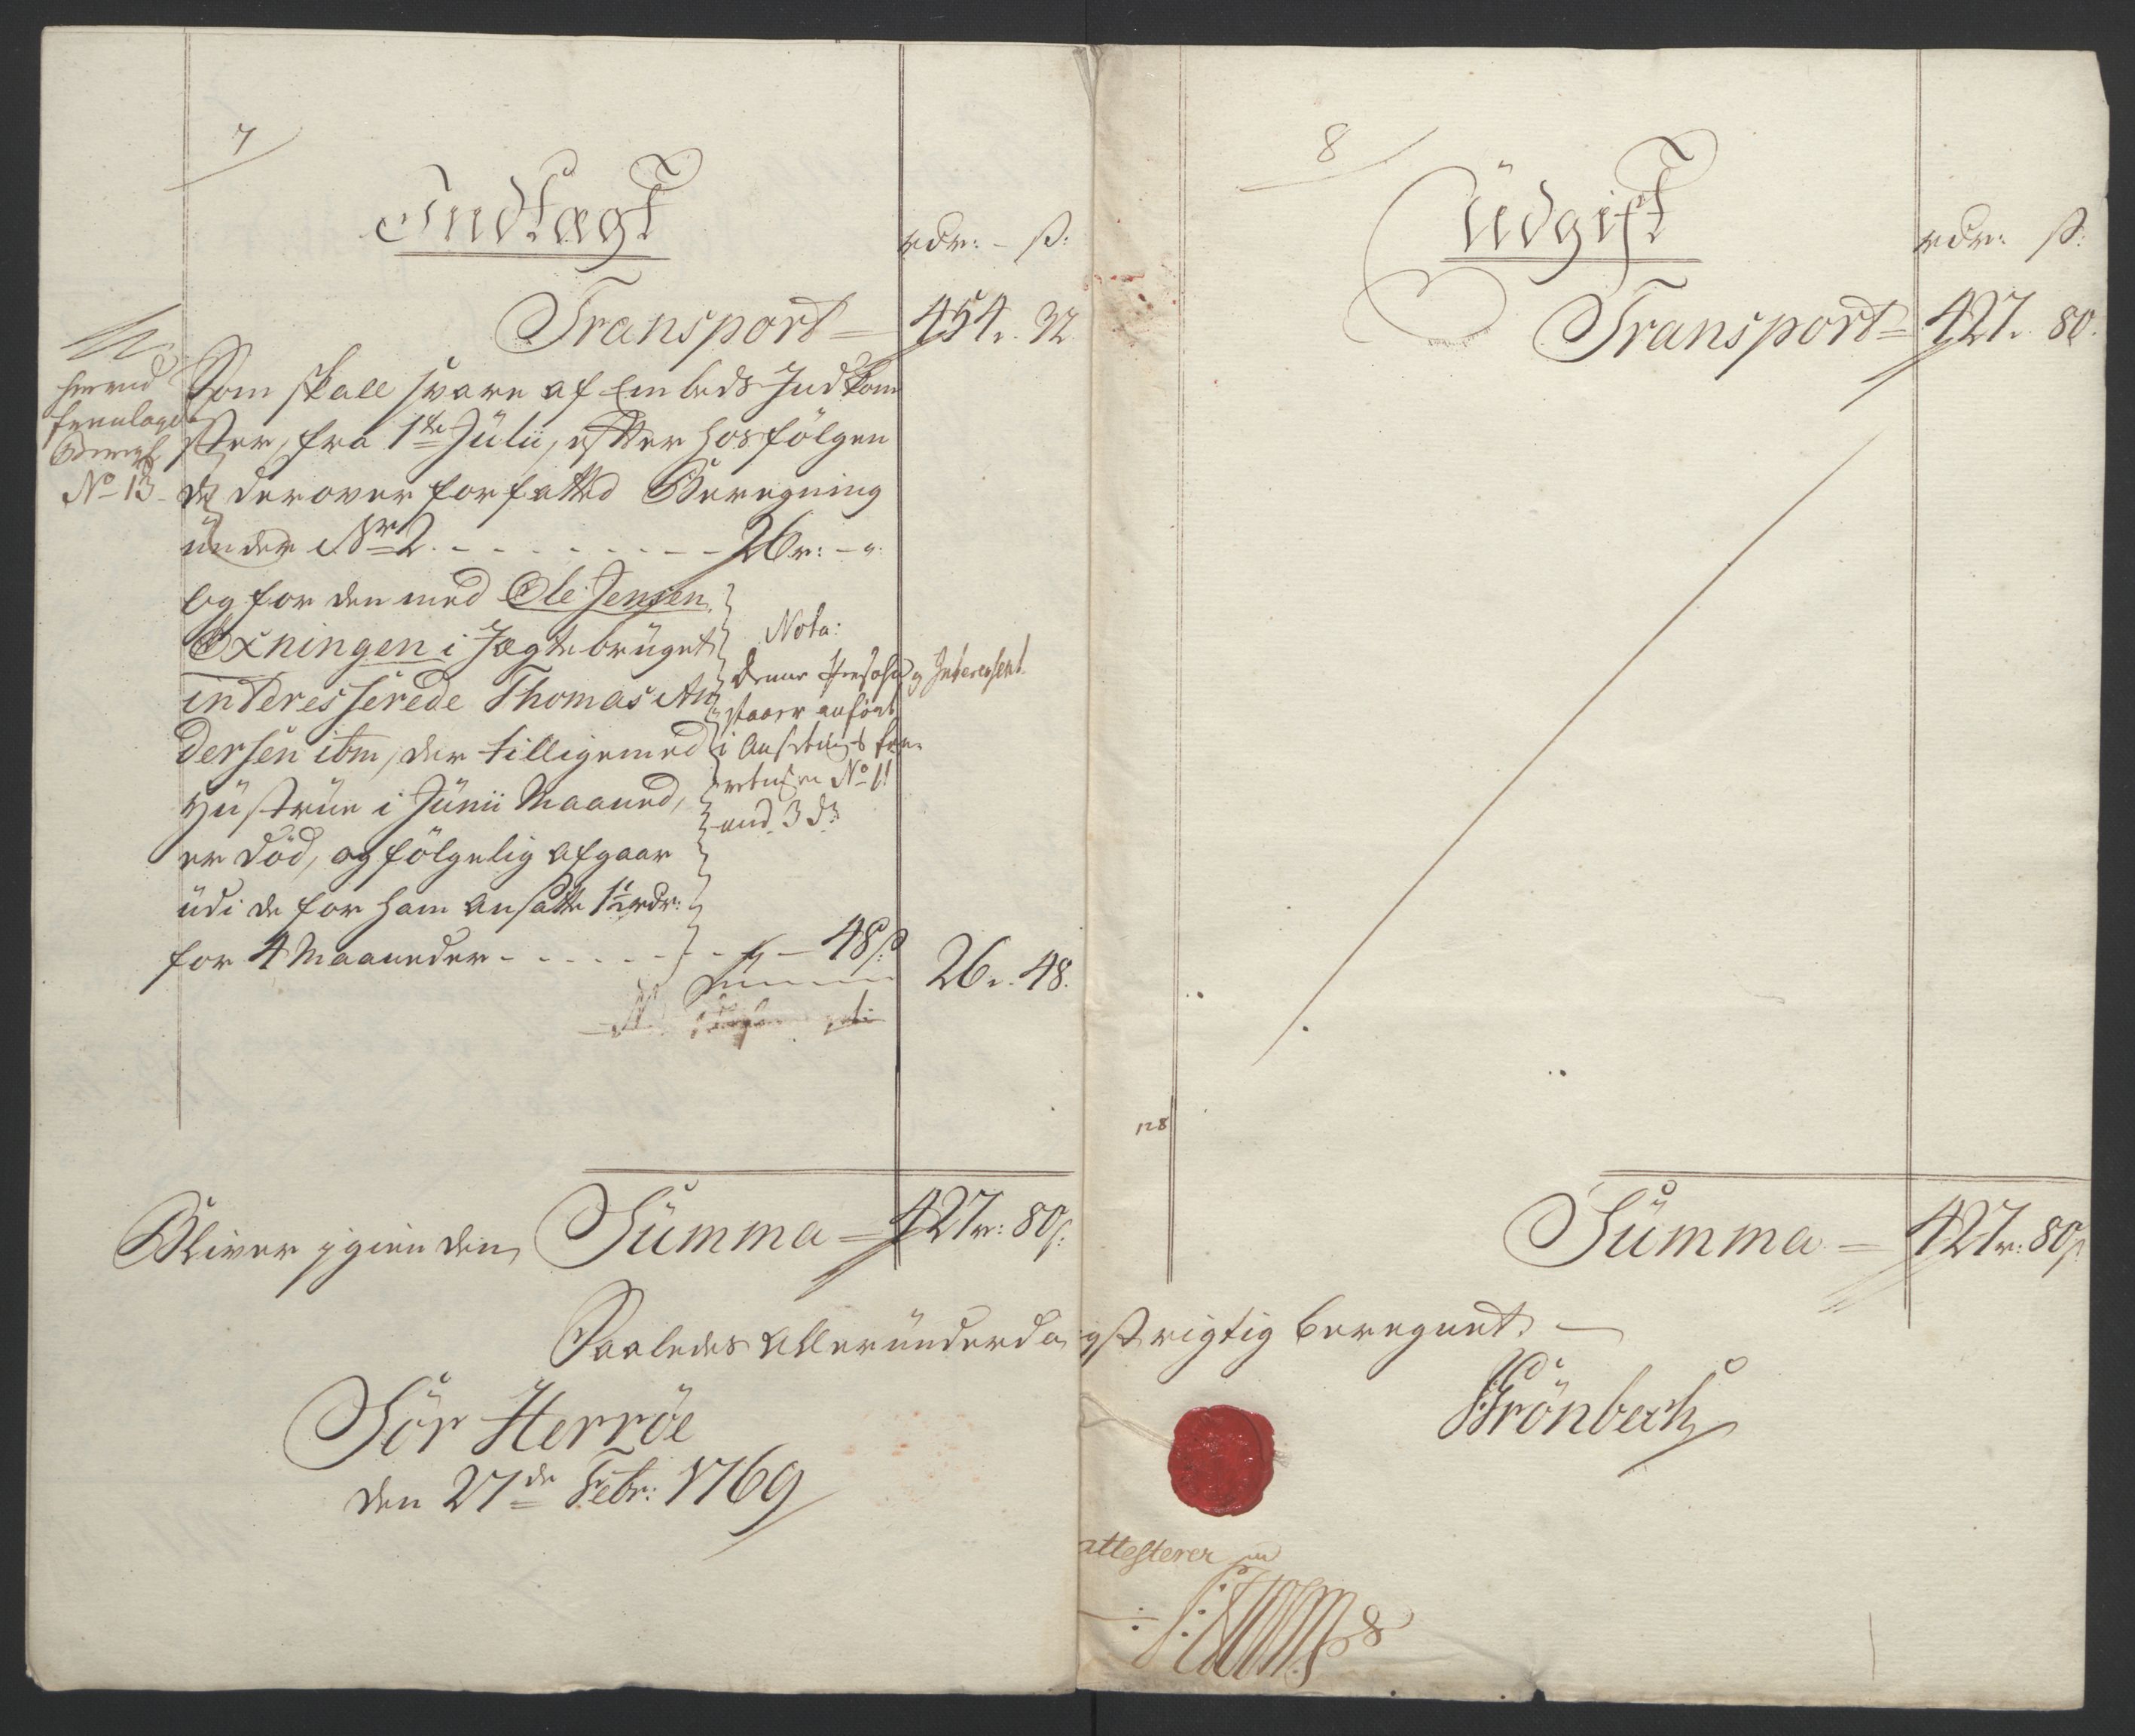 7
Indtægt
rdr: - ß:
Transport = 454. 32
No 13
Som skall svare af Embeds Indkom
ster, fra 1de Julii, efter hosfölgen
de derover forfatted Beregning
under Nr 2. - - - - - - - 26 r: - „
og for den med Ole Jensen
Öxningen i Jægtebrüget
interesserede Thomas An
dersen ibm, der tilligemed
Hüstrüe i Junii Maaned,
er död, og fölgelig afgaar
üdi de for ham ansatte 1½ rdr:
for 4 Maaneder - - - - - - - „ - 48 ß
26. 48.
Nota:
denne Interessent
staaer anfört
i Ansættelses
No 11
med 3 dr
Bliver igien den Summa = 427 r: 80 ß:
8
Üdgift
rdr: ß:
Transport = 427. 80.
128
Summa = 427 r: 80 ß
Saaledes alleründerdanigst rigtig beregnet. —
Sör Herröe
den 27de Febr: 1769
Grönbech
attesterer